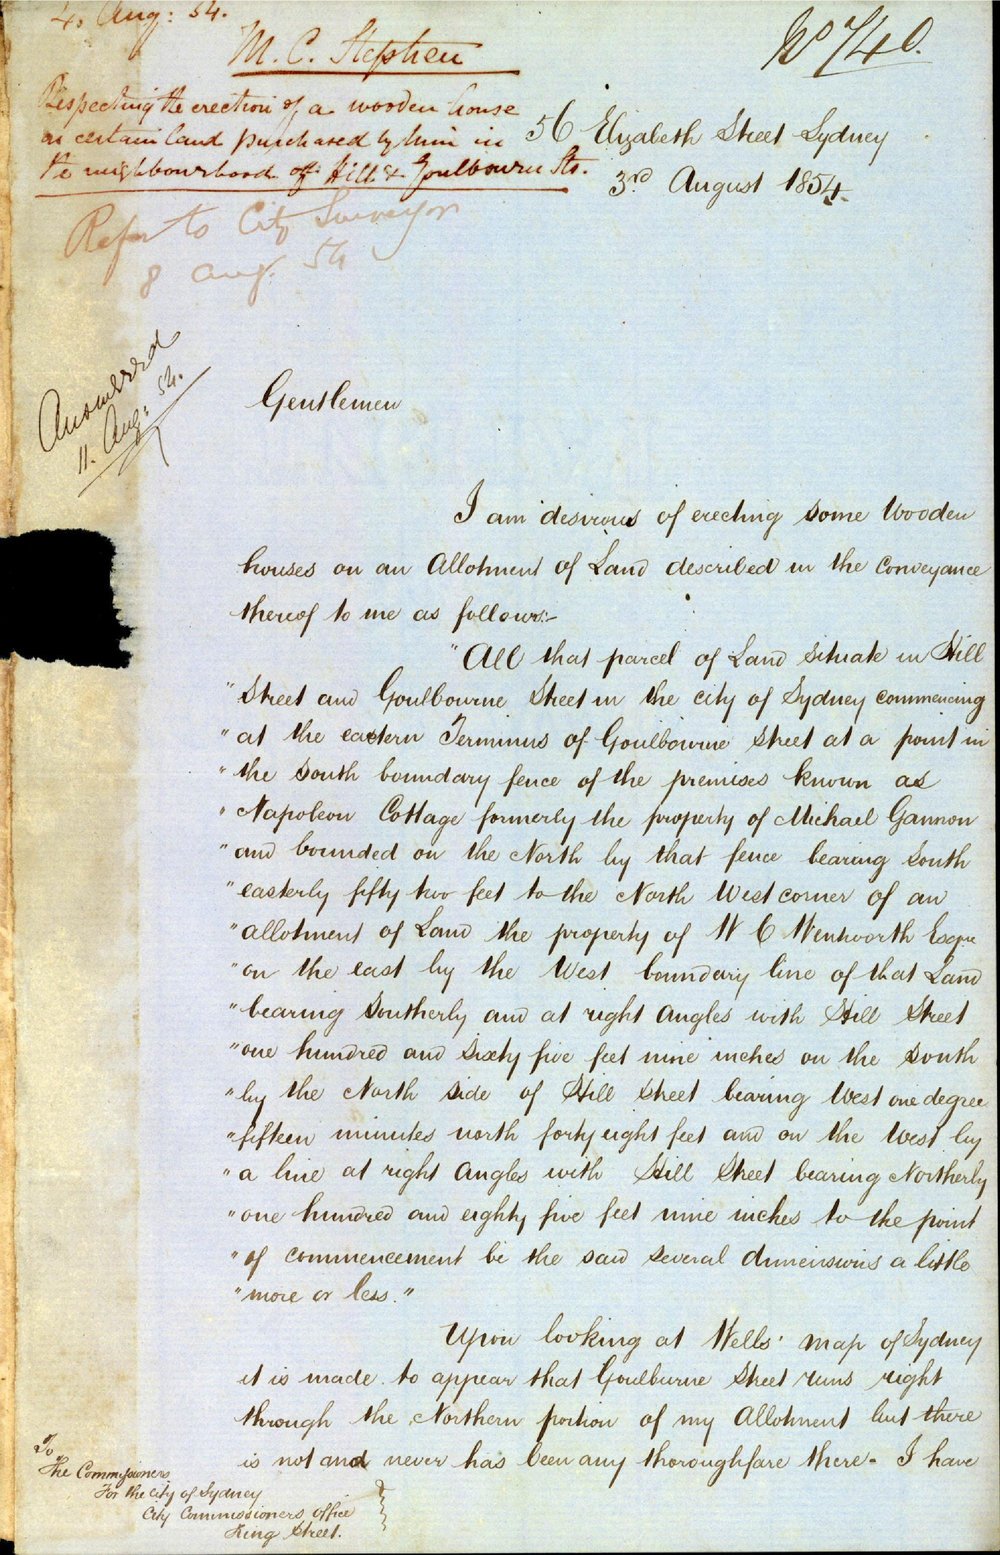 4. Aug: 54.
M. C. Stephen
No 740.
Respecting the erection of a wooden house
on certain land purchased by him in
the neighbourhood of Hill & Goulbourn Sts.
56 Elizabeth Street Sydney
3rd August 1854
Refer to City Surveyor
8 Aug. 54
Answered
11. Aug: 54.
Gentlemen
I am desirous of erecting some Wooden
houses on an Allotment of Land described in the Conveyance
thereof to me as follows:-
"All that parcel of Land situate in Hill
"Street and Goulbourne Street in the city of Sydney commencing
"at the eastern Terminus of Goulbourne Street at a point in
"the South boundary fence of the premises known as
"Napoleon Cottage formerly the property of Michael Gannon
"and bounded on the North by that fence bearing South
"easterly fifty two feet to the North West corner of an
"allotment of Land the property of W C Wentworth Esqre
"on the east by the West boundary line of that Land
"bearing Southerly and at right angles with Hill Street
"one hundred and sixty five feet nine inches on the South
"by the North side of Hill Street bearing West one degree
"fifteen minutes north forty eight feet and on the West by
"a line at right angles with Hill Street bearing Northerly
"one hundred and eighty five feet nine inches to the point
"of commencement be the said several dimensions a little
"more or less."
Upon looking at Wells' map of Sydney
it is made to appear that Goulburne Street runs right
through the Northern portion of my Allotment but there
is not and never has been any thoroughfare there - I have
To
The Commissioners
For the City of Sydney
City Commissioners office
King Street.